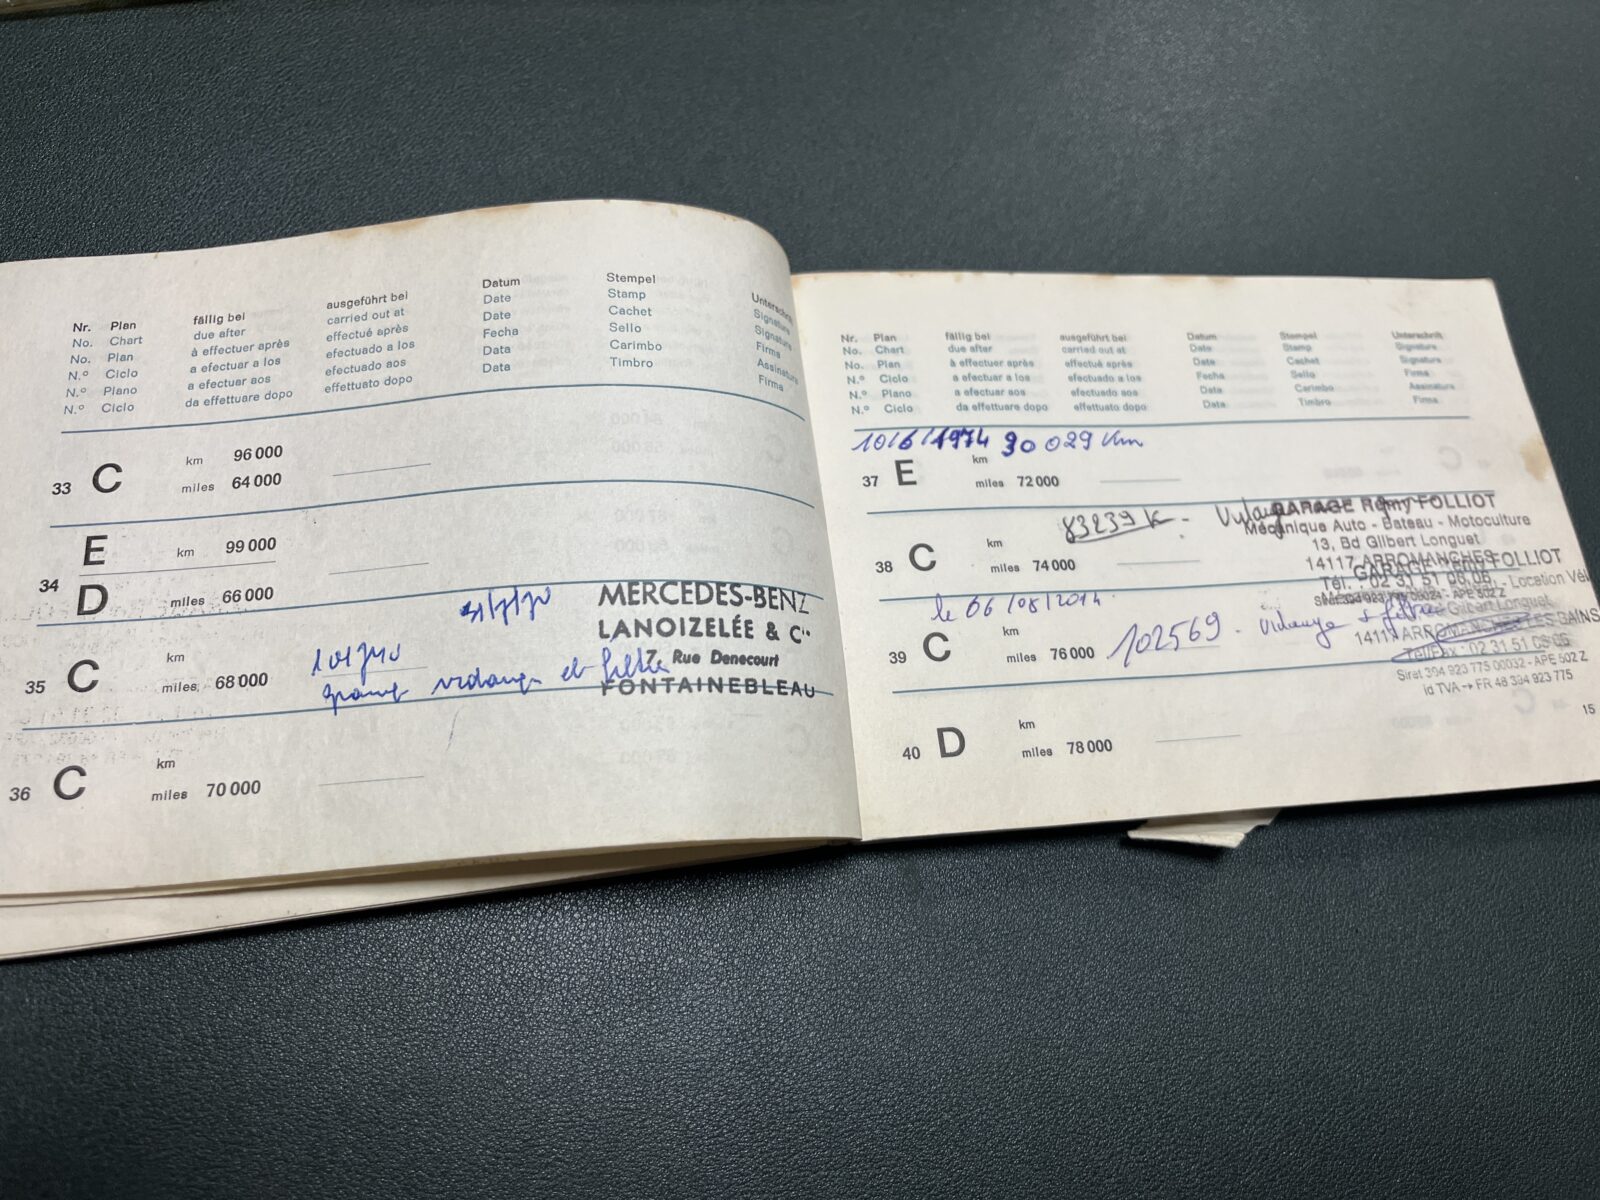 Nr. Plan fällig bei ausgeführt bei Datum Stempel Unterschrift
No. Chart due after carried out at Date Stamp Signature
No. Plan à effectuer après effectué après Date Cachet Signature
N.º Ciclo a efectuar a los efectuado a los Fecha Sello Firma
N.º Plano a efectuar aos efectuado aos Data Carimbo Assinatura
N.º Ciclo da effettuare dopo effettuato dopo Data Timbro Firma
33 C km 96 000
miles 64 000
34 E km 99 000
D miles 66 000
MERCEDES-BENZ
LANOIZELÉE & Cie
7, Rue Denecourt
FONTAINEBLEAU
35 C km
miles 68 000
vidange et filtre
36 C km
miles 70 000
Nr. Plan fällig bei ausgeführt bei Datum Stempel Unterschrift
No. Chart due after carried out at Date Stamp Signature
No. Plan à effectuer après effectué après Date Cachet Signature
N.º Ciclo a efectuar a los efectuado a los Fecha Sello Firma
N.º Plano a efectuar aos efectuado aos Data Carimbo Assinatura
N.º Ciclo da effettuare dopo effettuato dopo Data Timbro Firma
10/6/1974 90 029 Km
37 E km
miles 72 000
83239 K -
GARAGE Rémy FOLLIOT
Mécanique Auto - Bateau - Motoculture
13, Bd Gilbert Longuet
14117 ARROMANCHES
Tél. 02 31 51 06 06
38 C km
miles 74 000
GARAGE Rémy FOLLIOT
Location
Gilbert Longuet
14117 ARROMANCHES LES BAINS
Tel/Fax : 02 31 51 06 06
Siret 394 923 775 00032 - APE 502 Z
id TVA → FR 48 394 923 775
le 06/08/2014.
39 C km
miles 76 000
102569 - vidange + filtre
40 D km
miles 78 000
15